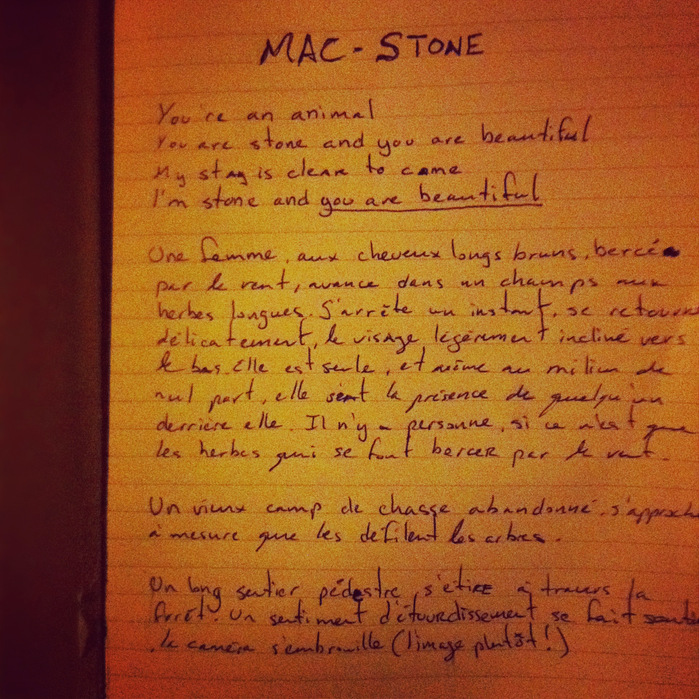 MAC-STONE
You're an animal
You are stone and you are beautiful
My stag is clear to come
I'm stone and you are beautiful
Une femme, aux cheveux longs bruns, bercée
par le vent, avance dans un champs aux
herbes longues. S'arrête un instant, se retourne
délicatement, le visage légèrement incliné vers
le bas. Elle est seule, et même au milieu de
nul part, elle sent la présence de quelqu'un
derrière elle. Il n'y a personne, si ce n'est que
les herbes qui se font bercer par le vent.
Un vieux camp de chasse abandonné. s'approche
à mesure que les défilent les arbres.
Un long sentier pédestre s'étire à travers la
forêt. Un sentiment d'étourdissement se fait sentir
. la caméra s'embrouille (l'image plutôt!)